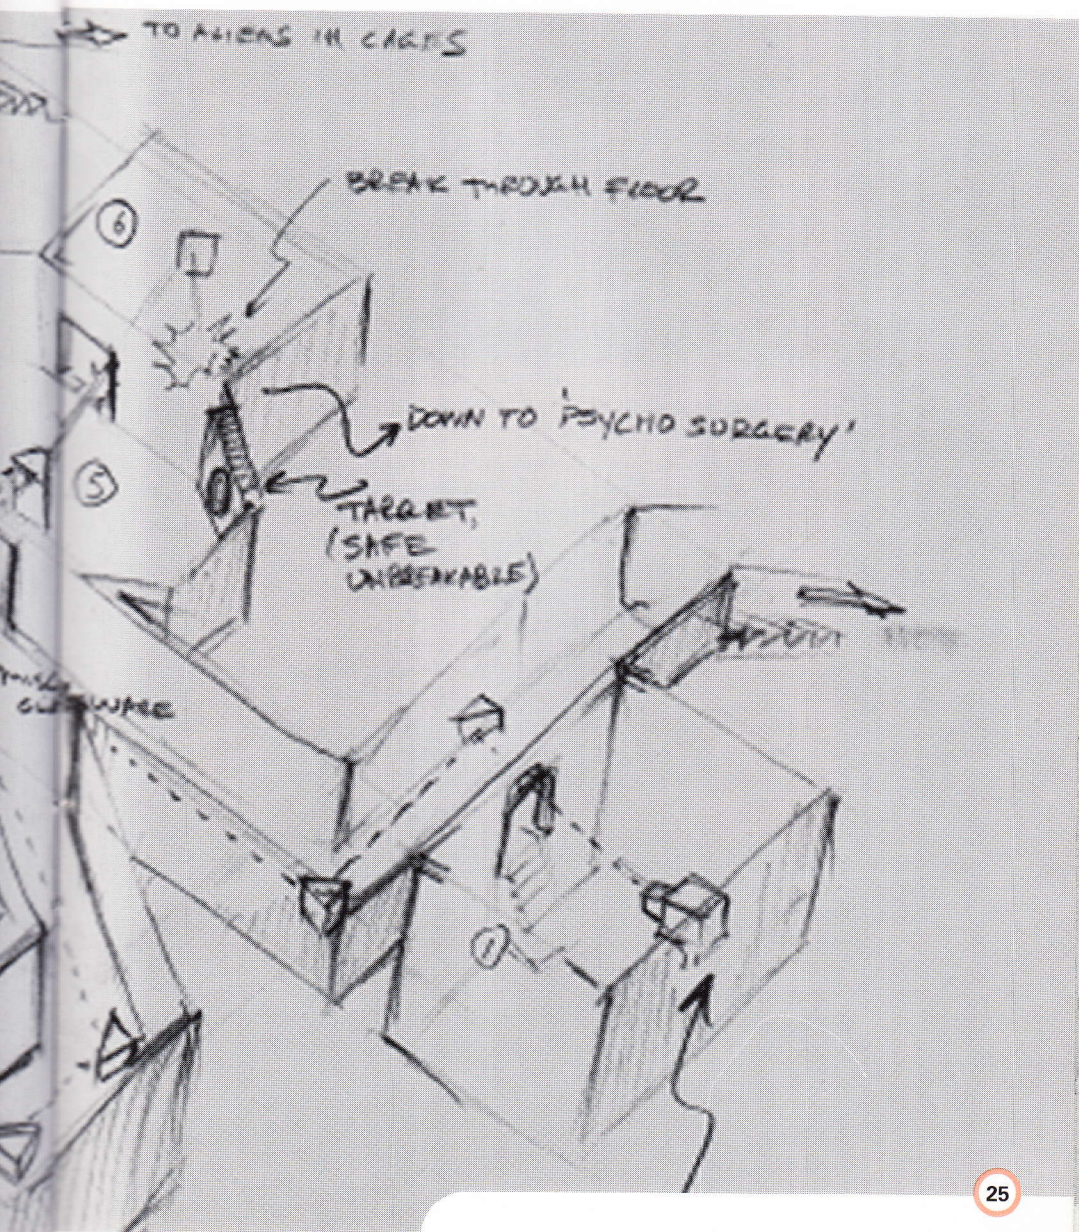 TO ALIENS IN CAGES
BREAK THROUGH FLOOR
6
DOWN TO 'PSYCHO SURGERY'
5
TARGET,
(SAFE
UNBREAKABLE)
1
25